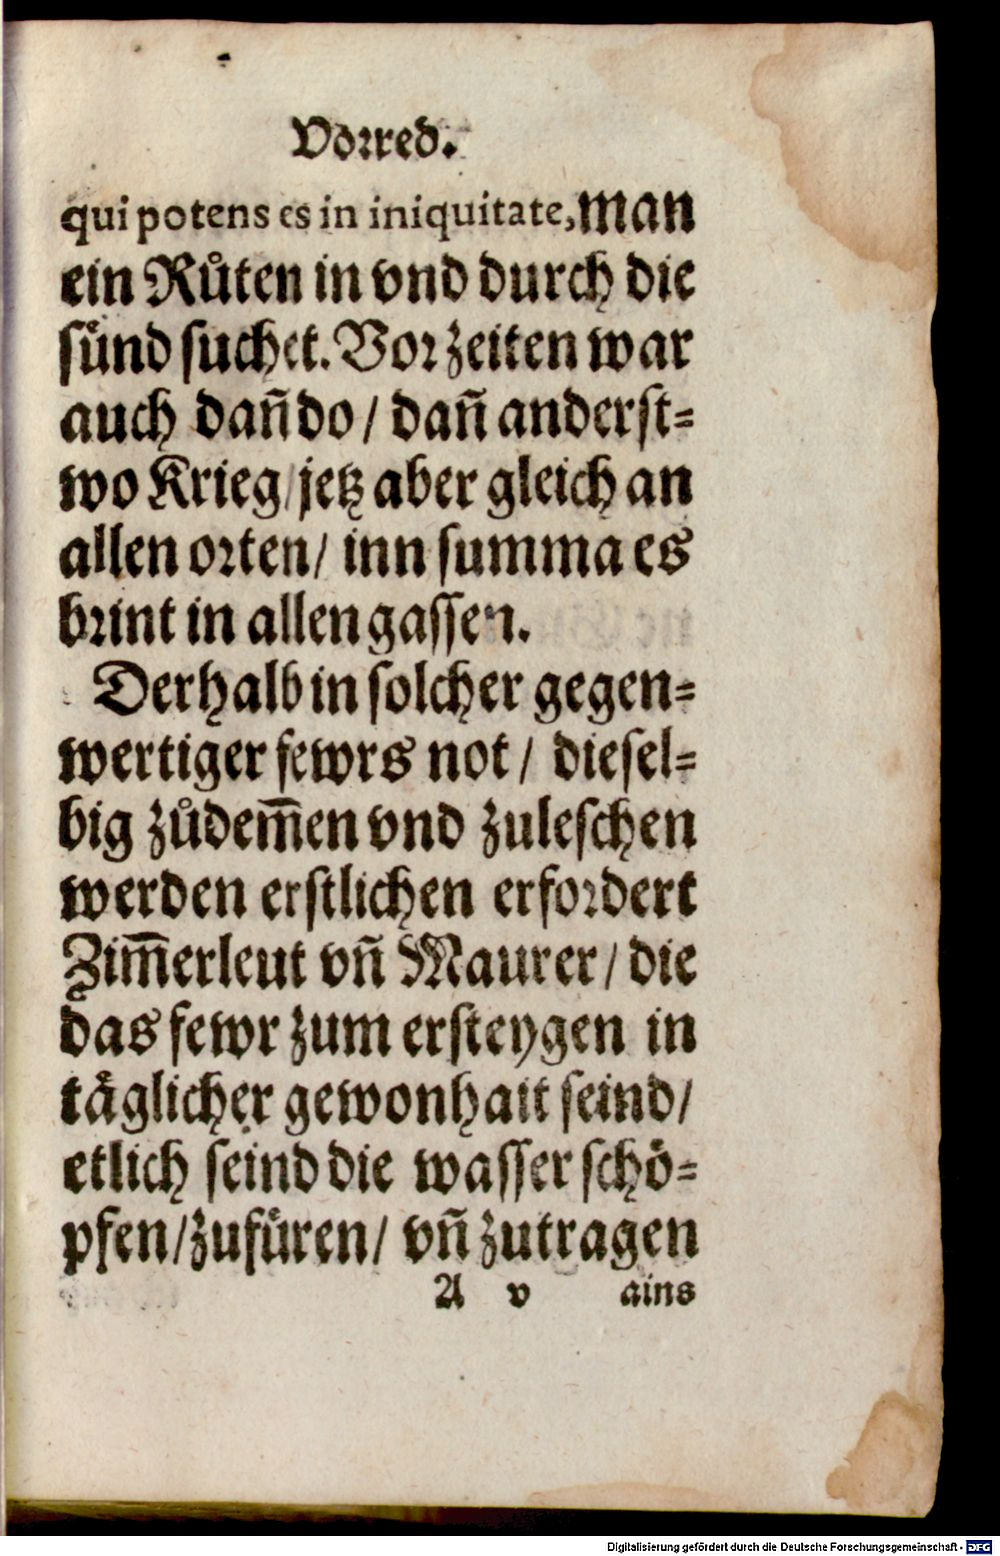 Vorred.
qui potens es in iniquitate, man
ein Růten in vnd durch die
sünd suchet. Vor zeiten war
auch dañ do / dañ anderst-
wo Krieg / jetz aber gleich an
allen orten / inn summa es
brint in allen gassen.
Derhalb in solcher gegen-
wertiger fewrs not / diesel-
big zůdem̄en vnd zuleschen
werden erstlichen erfordert
Zim̄erleut vñ Maurer / die
das fewr zum ersteygen in
täglicher gewonhait seind /
etlich seind die wasser schö-
pfen / zufüren / vñ zutragen
A v ains
Digitalisierung gefördert durch die Deutsche Forschungsgemeinschaft - DFG